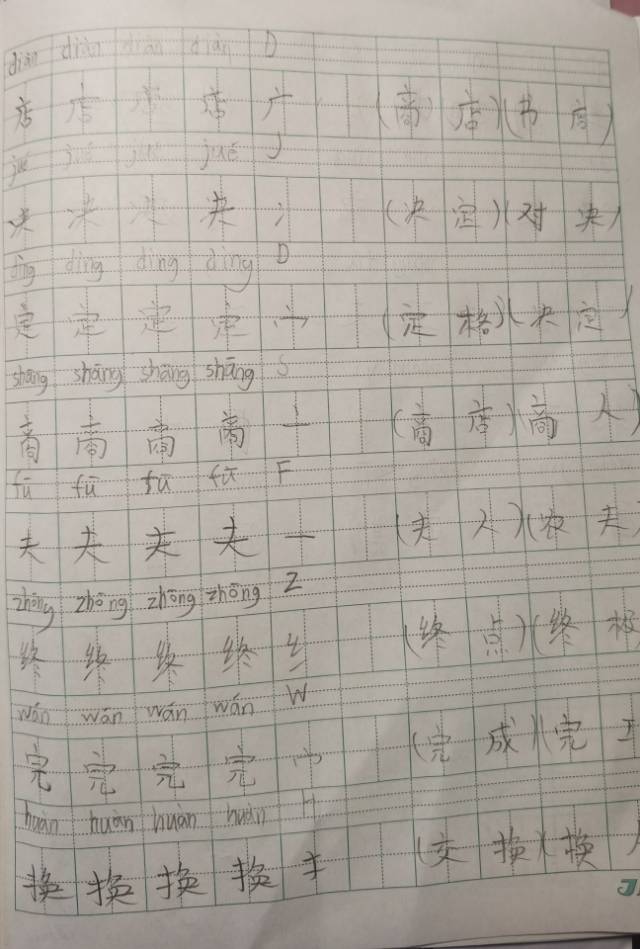 diàn diàn diàn diàn D
店 店 店 店 广 (商 店)(书 店)
jué jué jué jué J
决 决 决 决 冫 (决 定)(对 决)
dìng dìng dìng dìng D
定 定 定 定 宀 (定 格)(决 定)
shāng shāng shāng shāng S
商 商 商 商 亠 (商 店)(商 人)
fū fū fū fū F
夫 夫 夫 夫 一 (夫 人)(农 夫)
zhōng zhōng zhōng zhōng Z
终 终 终 终 纟 (终 点)(终 极
wán wán wán wán W
完 完 完 完 宀 (完 成)(完 工
huàn huàn huàn huàn H
换 换 换 换 扌 (交 换)(换 人